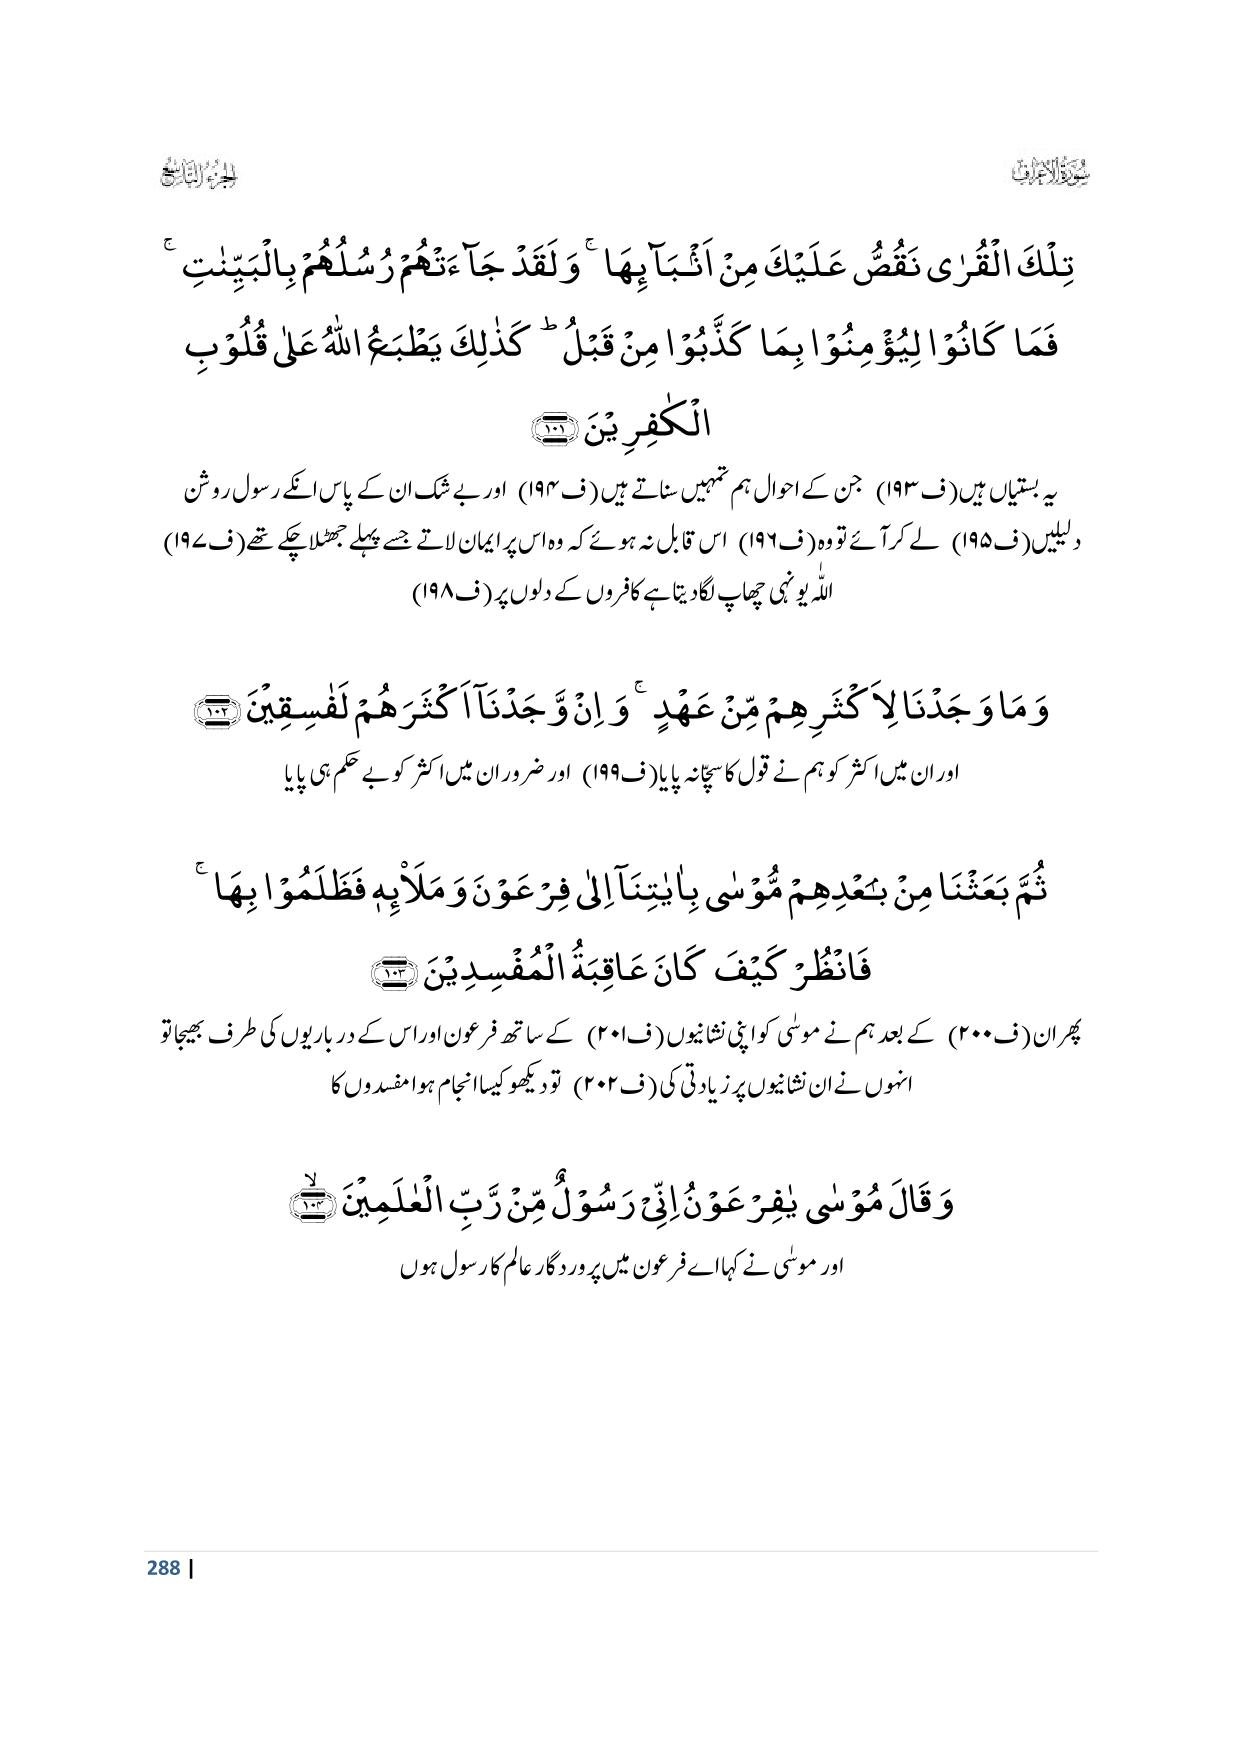 سُوْرَةُ الْاَعْرَاف
الجزء التاسع
تِلْكَ الْقُرٰى نَقُصُّ عَلَيْكَ مِنْ اَنْۢبَآئِهَا ۚ وَ لَقَدْ جَآءَتْهُمْ رُسُلُهُمْ بِالْبَيِّنٰتِ ۚ
فَمَا كَانُوْا لِيُؤْمِنُوْا بِمَا كَذَّبُوْا مِنْ قَبْلُ ؕ كَذٰلِكَ يَطْبَعُ اللّٰهُ عَلٰى قُلُوْبِ
الْكٰفِرِيْنَ ﴿۱۰۱﴾
یہ بستیاں ہیں(ف۱۹۳) جن کے احوال ہم تمہیں سناتے ہیں(ف۱۹۴) اور بے شک ان کے پاس انکے رسول روشن
دلیلیں(ف۱۹۵) لے کر آئے تو وہ(ف۱۹۶) اس قابل نہ ہوئے کہ وہ اس پر ایمان لاتے جسے پہلے جھٹلا چکے تھے(ف۱۹۷)
اللّٰہ یونہی چھاپ لگادیتا ہے کافروں کے دلوں پر(ف۱۹۸)
وَ مَا وَجَدْنَا لِاَكْثَرِهِمْ مِّنْ عَهْدٍ ۚ وَ اِنْ وَّجَدْنَاۤ اَكْثَرَهُمْ لَفٰسِقِيْنَ ﴿۱۰۲﴾
اور ان میں اکثر کو ہم نے قول کا سچّا نہ پایا(ف۱۹۹) اور ضرور ان میں اکثر کو بے حکم ہی پایا
ثُمَّ بَعَثْنَا مِنْۢ بَعْدِهِمْ مُّوْسٰى بِاٰيٰتِنَاۤ اِلٰى فِرْعَوْنَ وَ مَلَا۠ئِهٖ فَظَلَمُوْا بِهَا ۚ
فَانْظُرْ كَيْفَ كَانَ عَاقِبَةُ الْمُفْسِدِيْنَ ﴿۱۰۳﴾
پھر ان(ف۲۰۰) کے بعد ہم نے موسٰی کو اپنی نشانیوں(ف۲۰۱) کے ساتھ فرعون اور اس کے درباریوں کی طرف بھیجا تو
انہوں نے ان نشانیوں پر زیادتی کی(ف۲۰۲) تو دیکھو کیسا انجام ہوا مفسدوں کا
وَ قَالَ مُوْسٰى يٰفِرْعَوْنُ اِنِّىْ رَسُوْلٌ مِّنْ رَّبِّ الْعٰلَمِيْنَ ۙ﴿۱۰۴﴾
اور موسٰی نے کہا اے فرعون میں پروردگار عالم کا رسول ہوں
288 |